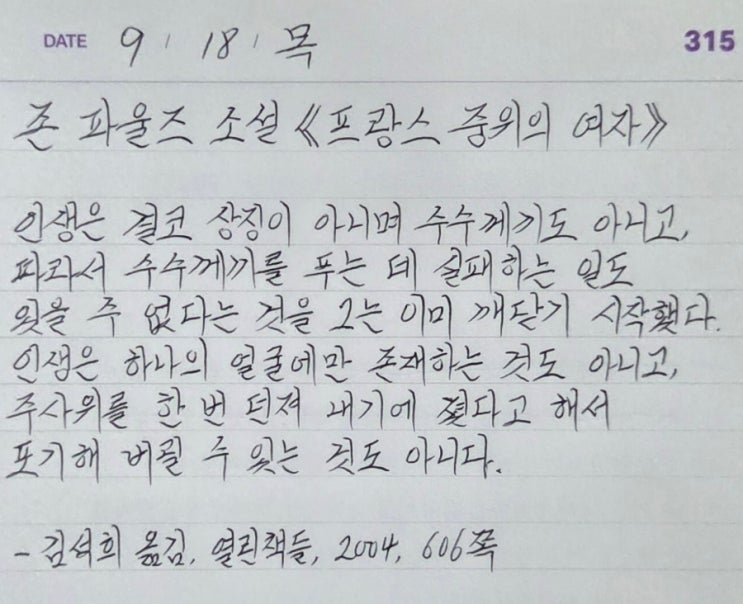 DATE 9 / 18 / 목 315
존 파울즈 소설 《프랑스 중위의 여자》
인생은 결코 상징이 아니며 수수께끼도 아니고,
따라서 수수께끼를 푸는 데 실패하는 일도
있을 수 없다는 것을 그는 이미 깨닫기 시작했다.
인생은 하나의 얼굴에만 존재하는 것도 아니고,
주사위를 한 번 던져 내기에 졌다고 해서
포기해 버릴 수 있는 것도 아니다.
- 김석희 옮김, 열린책들, 2004, 606쪽